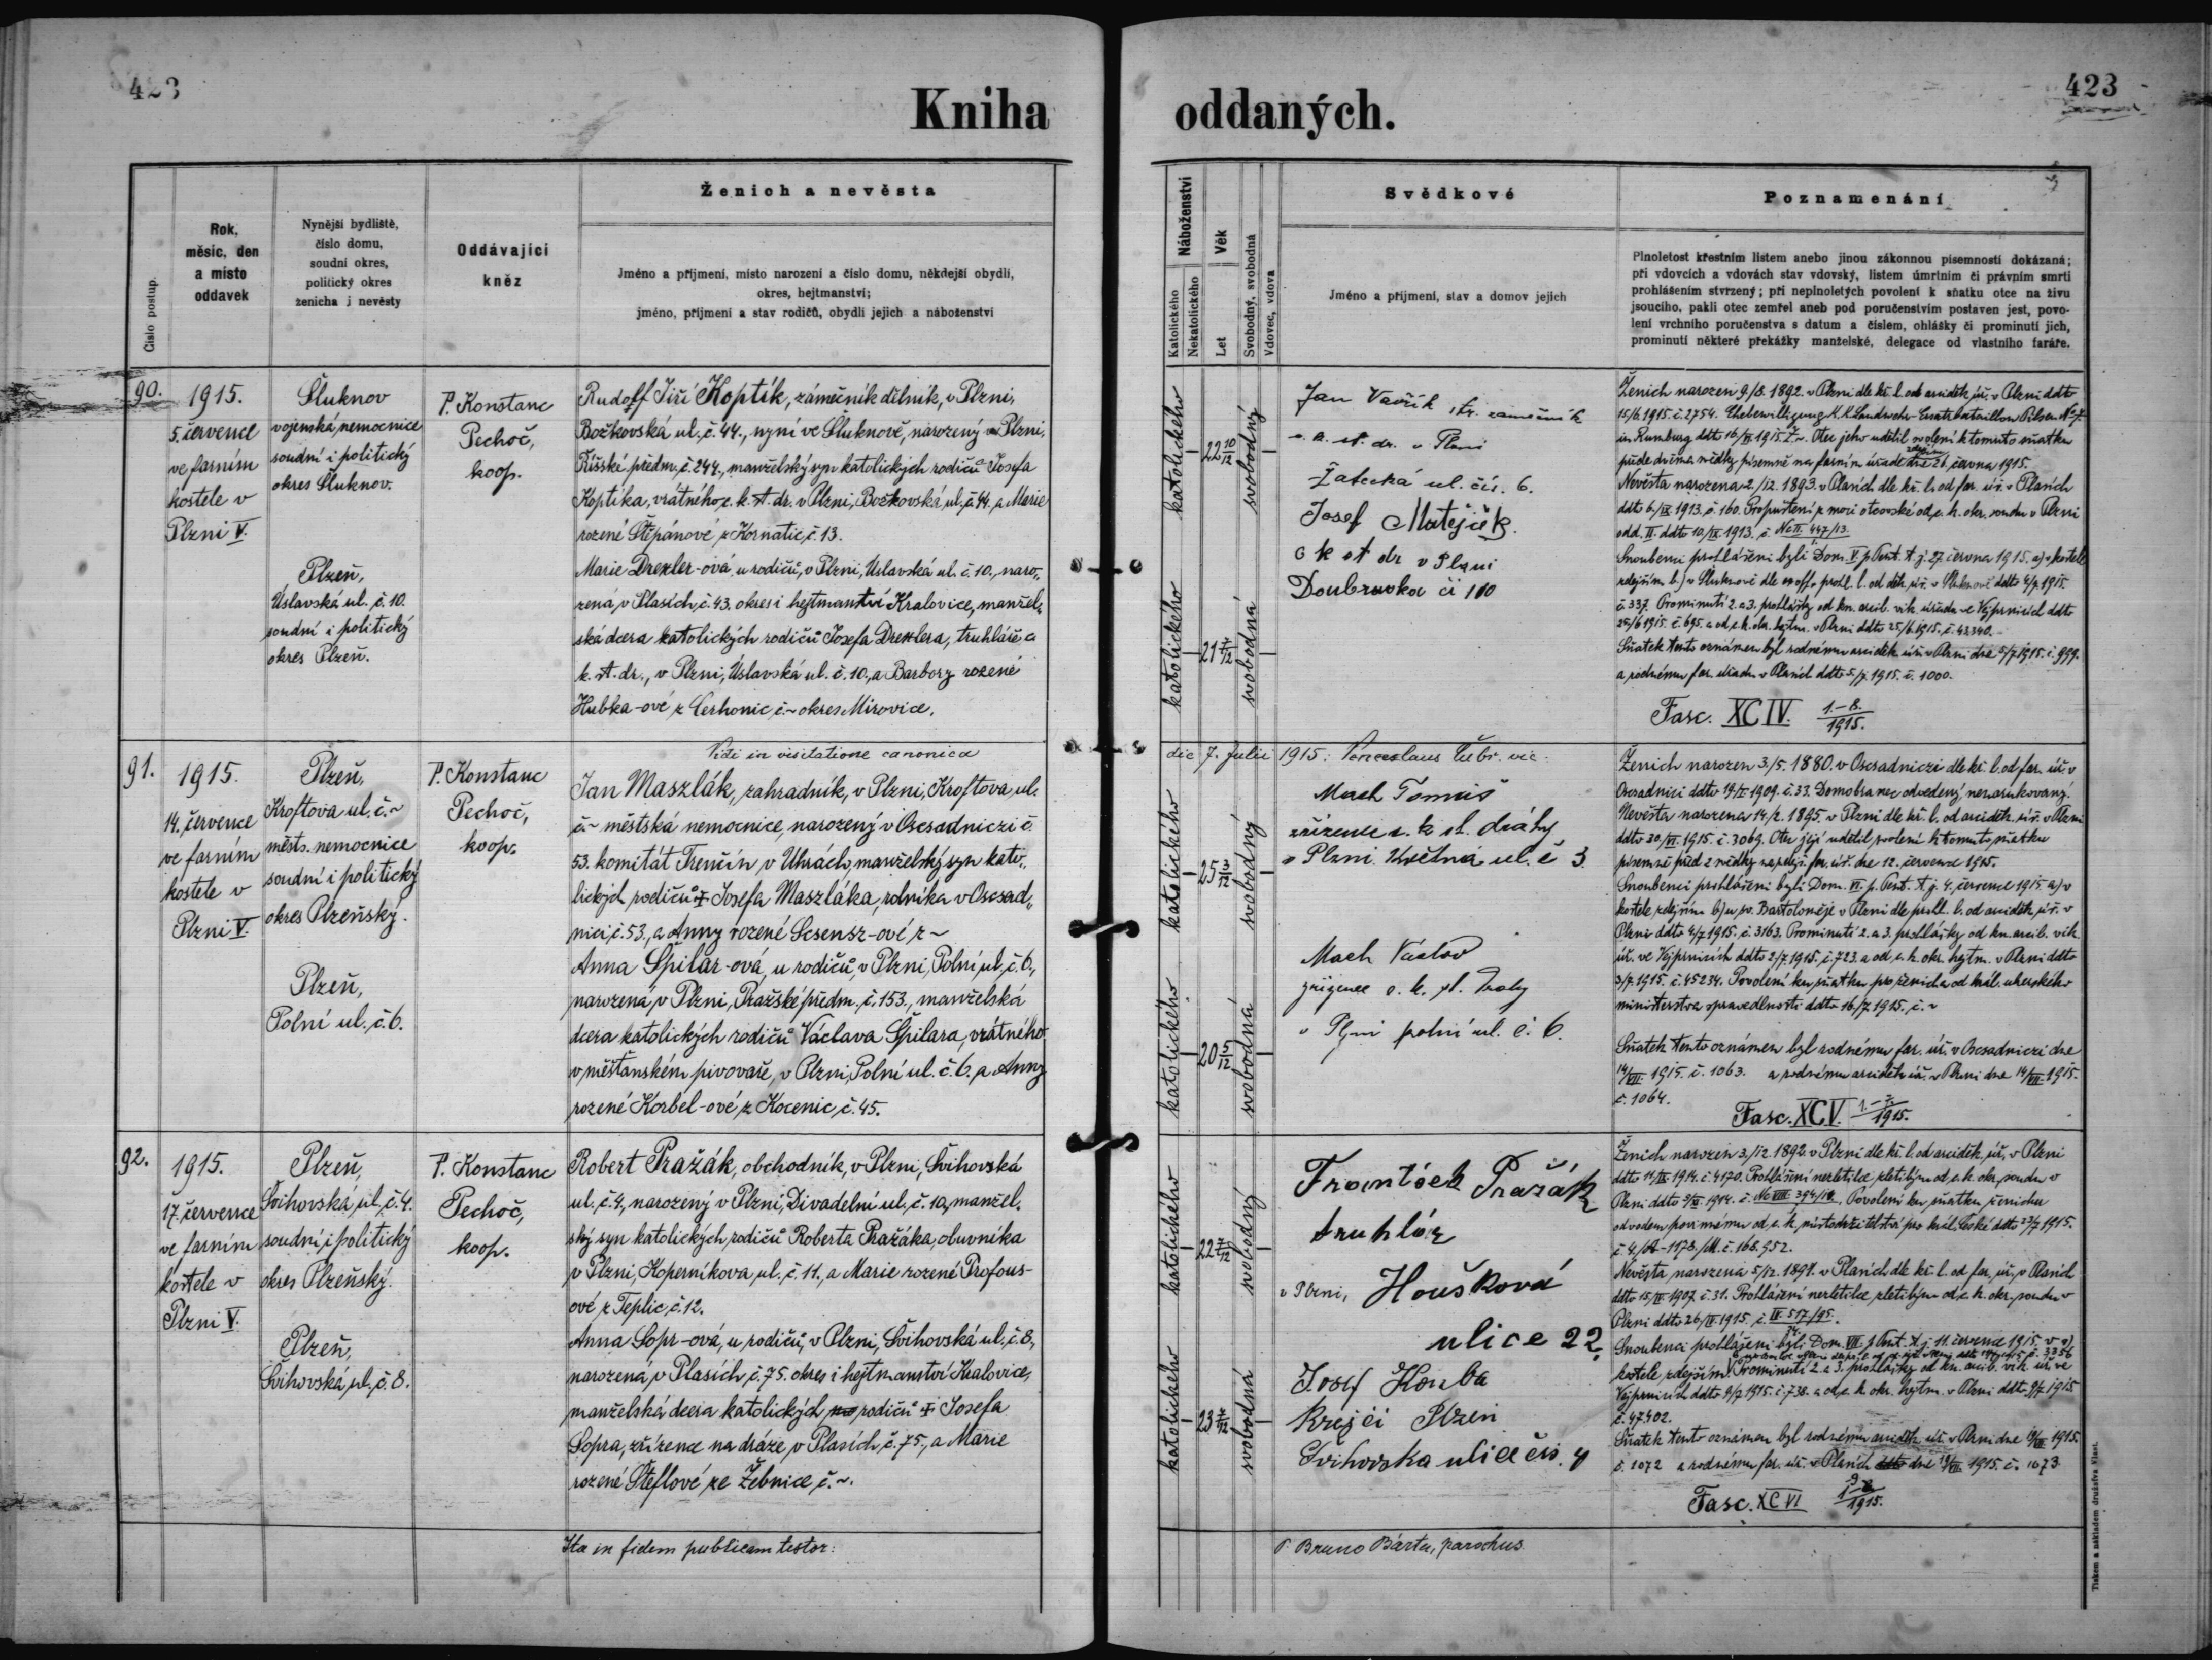 423
Kniha
oddaných.
423
Číslo postup.
Rok,
měsíc, den
a místo
oddavek
Nynější bydliště,
číslo domu,
soudní okres,
politický okres
ženicha i nevěsty
Oddávající
kněz
Ženich a nevěsta
Jméno a příjmení, místo narození a číslo domu, někdejší obydlí,
okres, hejtmanství;
jméno, příjmení a stav rodičů, obydlí jejich a náboženství
Náboženství
Katolického
Nekatolického
Věk
Let
Svobodný, svobodná
Vdovec, vdova
Svědkové
Jméno a příjmení, stav a domov jejich
Poznamenání
Plnoletost křestním listem anebo jinou zákonnou písemností dokázaná;
při vdovcích a vdovách stav vdovský, listem úmrtním či právním smrti
prohlášením stvrzený; při neplnoletých povolení k sňatku otce na živu
jsoucího, pakli otec zemřel aneb pod poručenstvím postaven jest, povo-
lení vrchního poručenstva s datum a číslem, ohlášky či prominutí jich,
prominutí některé překážky manželské, delegace od vlastního faráře.
90.
1915.
5. července
ve farním
kostele v
Plzni V.
Šluknov
vojenská nemocnice
soudní i politický
okres Šluknov.
Plzeň,
Úslavská ul. č. 10.
soudní i politický
okres Plzeň.
P. Konstanc
Pechoč,
koop.
Rudolf Jiří Koptík, zámečník dělník, v Plzni,
Božkovská ul. č. 44., nyní ve Šluknově, narozený v Plzni,
Říšské předm. č. 244., manželský syn katolických rodičů Josefa
Koptíka, vrátného c. k. st. dr. v Plzni, Božkovská ul. č. 44. a Marie
rozené Štěpánové z Kornatic č. 13.
Marie Drexler-ová, u rodičů, v Plzni, Úslavská ul. č. 10., naro-
zená v Plasích č. 43. okres i hejtmanství Kralovice, manžel-
ská dcera katolických rodičů Josefa Drexlera, truhláře c.
k. st. dr., v Plzni, Úslavská ul. č. 10., a Barbory rozené
Hubka-ové z Cerhonic č. ~ okres Mirovice.
katolického
22 10/12
svobodný
katolického
21 7/12
svobodná
Jan Vavřík str. zámečník
c. k. st. dr. v Plzni
Žatecká ul. čís. 6.
Josef Matějíček
c k st dr v Plzni
Doubravka či 110
Ženich narozen 9/8. 1892. v Plzni dle kř. l. od arciděk. úř. v Plzni ddto
15/6 1915. č. 2754. Ehebewilligung K. K. Landwehr-Ersatzbataillon Pilsen N° 7.
in Rumburg ddto 16/VI 1915. Ž. ~. Otec jeho udělil svolení k tomuto sňatku
přede dvěma svědky písemně na farním úřadě zdejším dne 26. června 1915.
Nevěsta narozena 2./12. 1893. v Plasích dle kř. l. od far. úř. v Plasích
ddto 6./IX 1913. č. 160. Propuštění z moci otcovské od c. k. okr. soudu v Plzni
odd. II. ddto 10/IX 1913. č. Nc II. 447/13.
Snoubenci prohlášeni byli Dom. V. p. Pent. t. j. 27. června 1915. a) v kostele
zdejším b.) v Šluknově dle ex offo prohl. l. od děk. úř. v Šluknově ddto 4/7. 1915.
č. 337. Prominutí 2. a 3. prohlášky od kn. arcib. vik. úřadu ve Vejprnicích ddto
25/6 1915. č. 695. a od c. k. okr. hejtm. v Plzni ddto 25/6. 1915. č. 43340.
Sňatek tento oznámen byl rodnému arciděk. úř. v Plzni dne 5/7 1915. č. 999.
a rodnému far. úřadu v Plasích ddto 5./7. 1915. č. 1000.
Fasc. XCIV. 1.-8./1915.
Vidi in visitatione canonica
die 7. Julii 1915: Venceslaus
91.
1915.
14. července
ve farním
kostele v
Plzni V.
Plzeň,
Kroftova ul. č. ~
měst. nemocnice
soudní i politický
okres Plzeňský.
Plzeň,
Polní ul. č. 6.
P. Konstanc
Pechoč,
koop.
Jan Maszlák, zahradník, v Plzni, Kroftova ul.
č. ~ městská nemocnice, narozený v Oscsadniczi č.
53. komitát Trenčín v Uhrách, manželský syn kato-
lických rodičů † Josefa Maszláka, rolníka v Oscsad-
nici č. 53., a Anny rozené Scsensz-ové z ~
Anna Špilar-ová, u rodičů, v Plzni, Polní ul. č. 6.,
narozená v Plzni, Pražské předm. č. 153., manželská
dcera katolických rodičů Václava Špilara, vrátného
v měšťanském pivovaře, v Plzni, Polní ul. č. 6. a Anny
rozené Korbel-ové z Kocenic č. 45.
katolického
25 3/12
svobodný
katolického
20 5/12
svobodná
Mach Tomáš
zřízenec c. k. st. dráhy
v Plzni Květná ul. č 3.
Mach Václav
zřízenec c. k. st. dráhy
v Plzni polní ul. č. 6.
Ženich narozen 3./5. 1880. v Oscsadniczi dle kř. l. od far. úř. v
Oscsadnici ddto 19/I 1909. č. 33. Domobranec odvedený nenarukovaný.
Nevěsta narozena 14/2. 1895. v Plzni dle kř. l. od arciděk. úř. v Plzni
ddto 30/VI. 1915. č. 3009. Otec její udělil svolení k tomuto sňatku
písemně před 2 svědky na zdejš. far. úř. dne 12. července 1915.
Snoubenci prohlášeni byli Dom. VI. p. Pent. t. j. 4. července 1915. a) v
kostele zdejším b) u sv. Bartoloměje v Plzni dle prohl. l. od arciděk. úř. v
Plzni ddto 4/7 1915. č. 3163. Prominutí 2. a 3. prohlášky od kn. arcib. vik.
úř. ve Vejprnicích ddto 2/7. 1915. č. 723. a od c. k. okr. hejtm. v Plzni ddto
3/7. 1915. č. 45234. Povolení ku sňatku pro ženicha od král. uherského
ministerstva spravedlnosti ddto 16/7. 1915. č. ~
Sňatek tento oznámen byl rodnému far. úř. v Oscsadniczi dne
14/VII. 1915. č. 1063. a rodnému arciděk. úř. v Plzni dne 14/VII. 1915.
č. 1064.
Fasc. XCV. 1.-7./1915.
92.
1915.
17. července
ve farním
kostele v
Plzni V.
Plzeň,
Švihovská ul. č. 4.
soudní i politický
okres Plzeňský.
Plzeň,
Švihovská ul. č. 8.
P. Konstanc
Pechoč,
koop.
Robert Pražák, obchodník, v Plzni, Švihovská
ul. č. 4, narozený v Plzni, Divadelní ul. č. 10, manžel-
ský syn katolických rodičů Roberta Pražáka, obuvníka
v Plzni, Koperníkova ul. č. 11., a Marie rozené Profous-
ové z Teplic č. 12.
Anna Sopr-ová, u rodičů, v Plzni, Švihovská ul. č. 8.,
narozená v Plasích č. 75. okres i hejtmanství Kralovice,
manželská dcera katolických rodičů † Josefa
Sopra, zřízence na dráze v Plasích č. 75., a Marie
rozené Šteflové ze Žebnice č. ~.
katolického
22 7/12
svobodný
katolického
23 7/12
svobodná
František Pražák
truhlář
v Plzni, Houšková
ulice 22.
Josef Houba
Krejčí Plzeň
Švihovska ulice čis. 4
Ženich narozen 3./12. 1892. v Plzni dle kř. l. od arciděk. úř. v Plzni
Povolení ku sňatku ženichu
odvodem povinnému od c. k. místodržitelství pro král. České ddto 27/7 1915.
č. 4/A-1178/M. č. 168.952.
Nevěsta narozena 5/12. 1891. v Plasích dle kř. l. od far. úř. v Plasích
Snoubenci prohlášeni byli Dom. VII. p. Pent. t. j. 11. července 1915. v
kostele zdejším. Prominutí 2. a 3. prohlášky od kn. arcib. vik. úř. ve
Vejprnicích ddto 9/7 1915. č. 738. a od c. k. okr. hejtm. v Plzni ddto 9/7 1915
č. 47402.
Sňatek tento oznámen byl rodnému arciděk. úř. v Plzni dne 19/VII 1915.
č. 1072 a rodnému far. úř. v Plasích dne 19/VII 1915. č. 1073.
Fasc. XCVI 1-9/1915.
Ita in fidem publicam testor:
P. Bruno Bárta, parochus.
Tiskem a nákladem družstva Vlast.